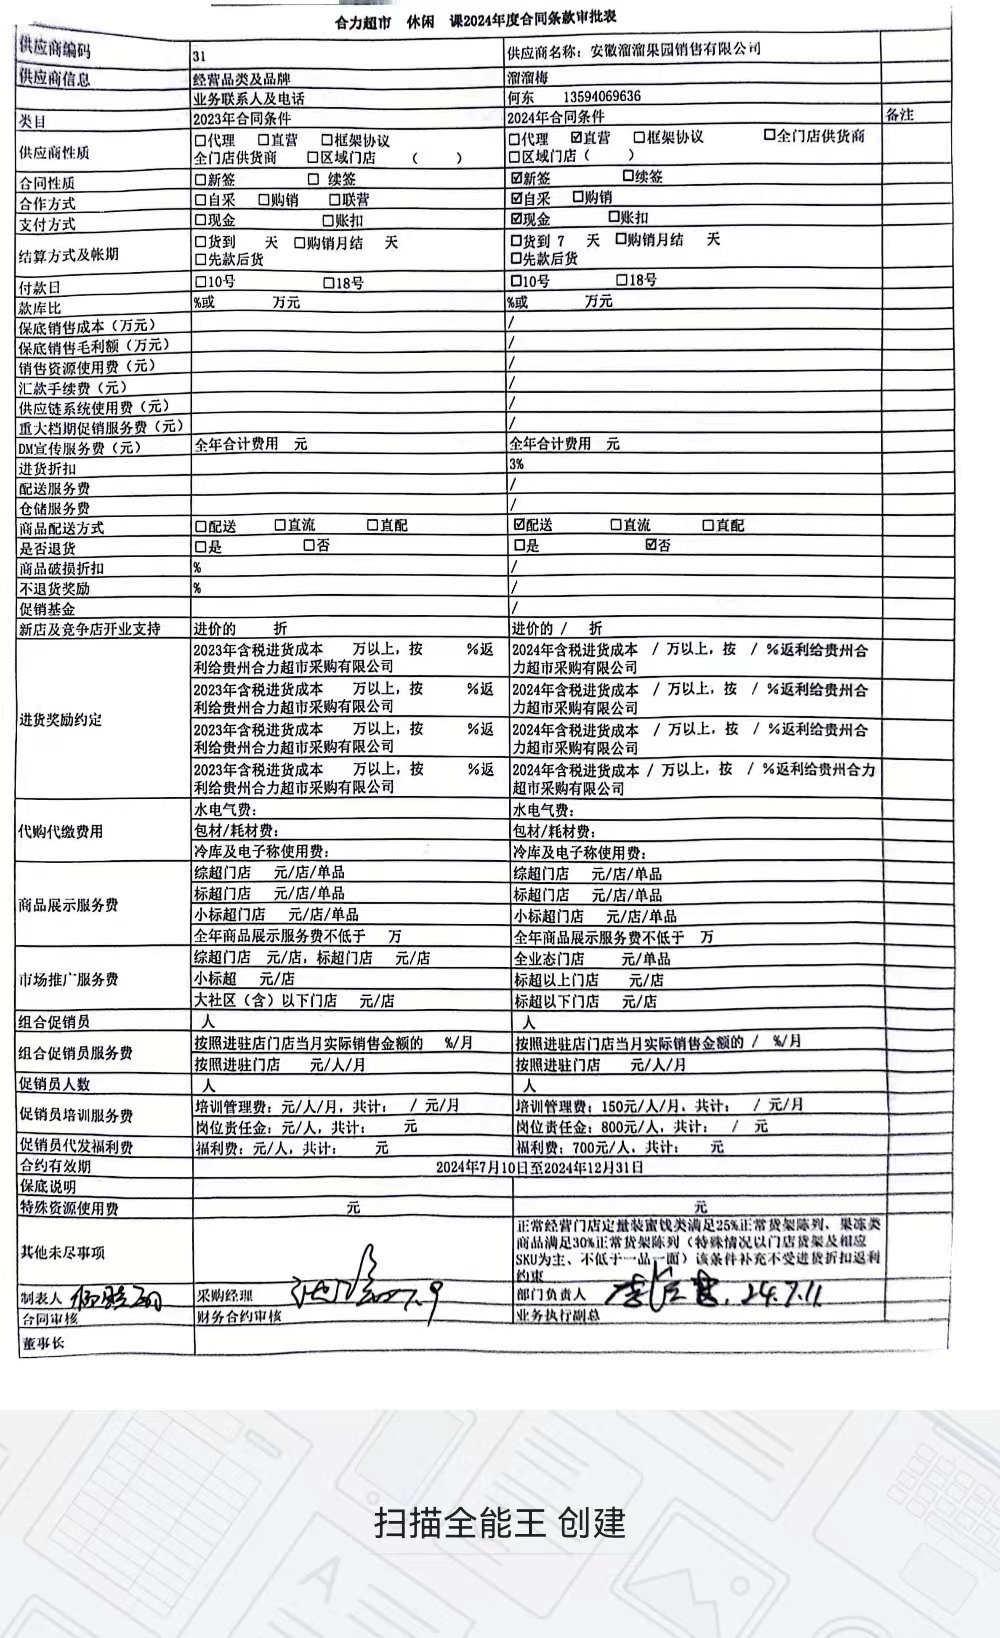 合力超市 休闲 课2024年度合同条款审批表
供应商编码 31 供应商名称：安徽溜溜果园销售有限公司
供应商信息 经营品类及品牌 溜溜梅
业务联系人及电话 何东 13594069636
类目 2023年合同条件 2024年合同条件 备注
供应商性质 □代理 □直营 □框架协议 □代理 ☑直营 □框架协议 □全门店供货商
全门店供货商 □区域门店 （ ） □区域门店（ ）
合同性质 □新签 □ 续签 ☑新签 □续签
合作方式 □自采 □购销 □联营 ☑自采 □购销
支付方式 □现金 □账扣 ☑现金 □账扣
结算方式及帐期 □货到 天 □购销月结 天 □货到 7 天 □购销月结 天
□先款后货 □先款后货
付款日 □10号 □18号 □10号 □18号
款库比 %或 万元 %或 万元
保底销售成本（万元） /
保底销售毛利额（万元） /
销售资源使用费（元） /
汇款手续费（元） /
供应链系统使用费（元） /
重大档期促销服务费（元） /
DM宣传服务费（元） 全年合计费用 元 全年合计费用 元
进货折扣 3%
配送服务费 /
仓储服务费 /
商品配送方式 □配送 □直流 □直配 ☑配送 □直流 □直配
是否退货 □是 □否 □是 ☑否
商品破损折扣 % /
不退货奖励 % /
促销基金 /
新店及竞争店开业支持 进价的 折 进价的 / 折
进货奖励约定 2023年含税进货成本 万以上，按 %返 2024年含税进货成本 / 万以上，按 / %返利给贵州合
利给贵州合力超市采购有限公司 力超市采购有限公司
2023年含税进货成本 万以上，按 %返 2024年含税进货成本 / 万以上，按 / %返利给贵州合
利给贵州合力超市采购有限公司 力超市采购有限公司
2023年含税进货成本 万以上，按 %返 2024年含税进货成本 / 万以上，按 / %返利给贵州合
利给贵州合力超市采购有限公司 力超市采购有限公司
2023年含税进货成本 万以上，按 %返 2024年含税进货成本 / 万以上，按 / %返利给贵州合力
利给贵州合力超市采购有限公司 超市采购有限公司
代购代缴费用 水电气费： 水电气费：
包材/耗材费： 包材/耗材费：
冷库及电子称使用费： 冷库及电子称使用费：
商品展示服务费 综超门店 元/店/单品 综超门店 元/店/单品
标超门店 元/店/单品 标超门店 元/店/单品
小标超门店 元/店/单品 小标超门店 元/店/单品
全年商品展示服务费不低于 万 全年商品展示服务费不低于 万
市场推广服务费 综超门店 元/店，标超门店 元/店 全业态门店 元/单品
小标超 元/店 标超以上门店 元/店
大社区（含）以下门店 元/店 标超以下门店 元/店
组合促销员 人 人
组合促销员服务费 按照进驻店门店当月实际销售金额的 %/月 按照进驻店门店当月实际销售金额的 / %/月
按照进驻门店 元/人/月 按照进驻门店 元/人/月
促销员人数 人 人
促销员培训服务费 培训管理费：元/人/月，共计： / 元/月 培训管理费：150元/人/月，共计： / 元/月
岗位责任金：元/人，共计： 元 岗位责任金：800元/人，共计： / 元
促销员代发福利费 福利费：元/人，共计： 元 福利费：700元/人，共计： 元
合约有效期 2024年7月10日至2024年12月31日
保底说明
特殊资源使用费 元 元
其他未尽事项 正常经营门店定量装蜜饯类满足25%正常货架陈列，果冻类
商品满足30%正常货架陈列（特殊情况以门店货架及相应
SKU为主，不低于一品一面）该条件补充不受进货折扣返利
约束
制表人 采购经理 部门负责人 24.7.11
合同审核 财务合约审核 业务执行副总
董事长
扫描全能王 创建